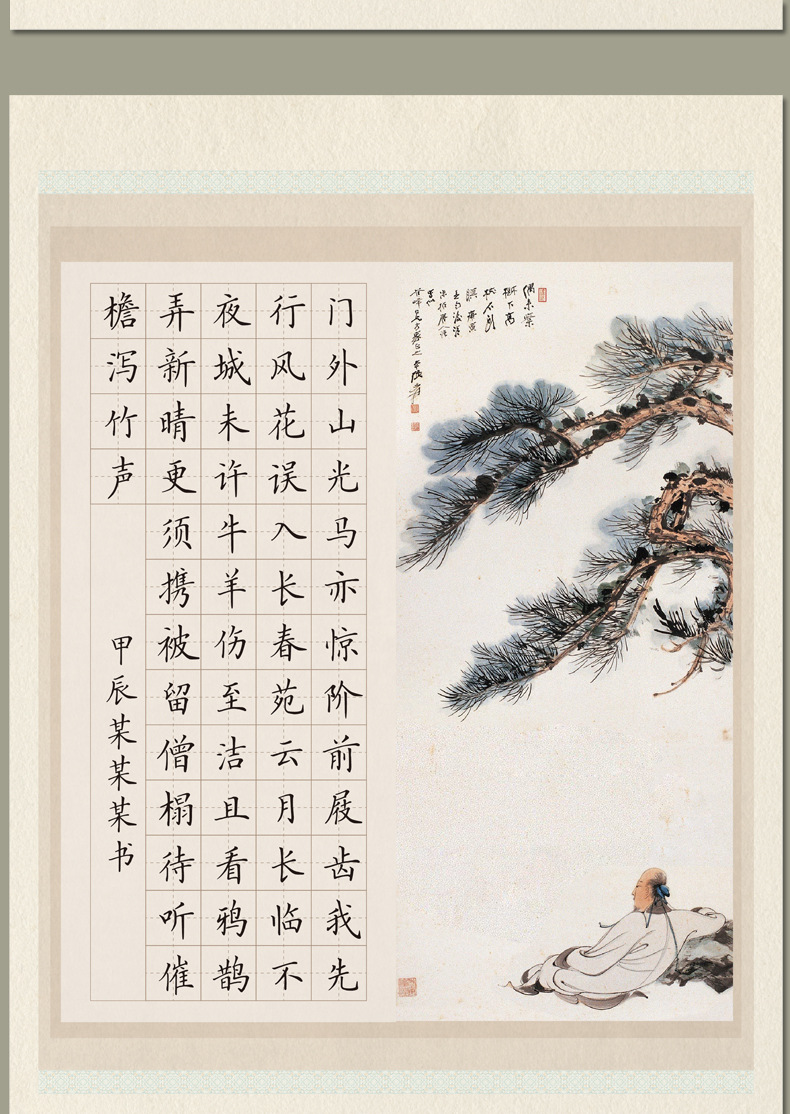 门外山光马亦惊阶前屐齿我先
行风花误入长春苑云月长临不
夜城未许牛羊伤至洁且看鸦鹊
弄新晴更须携被留僧榻待听催
檐泻竹声
甲辰某某某书